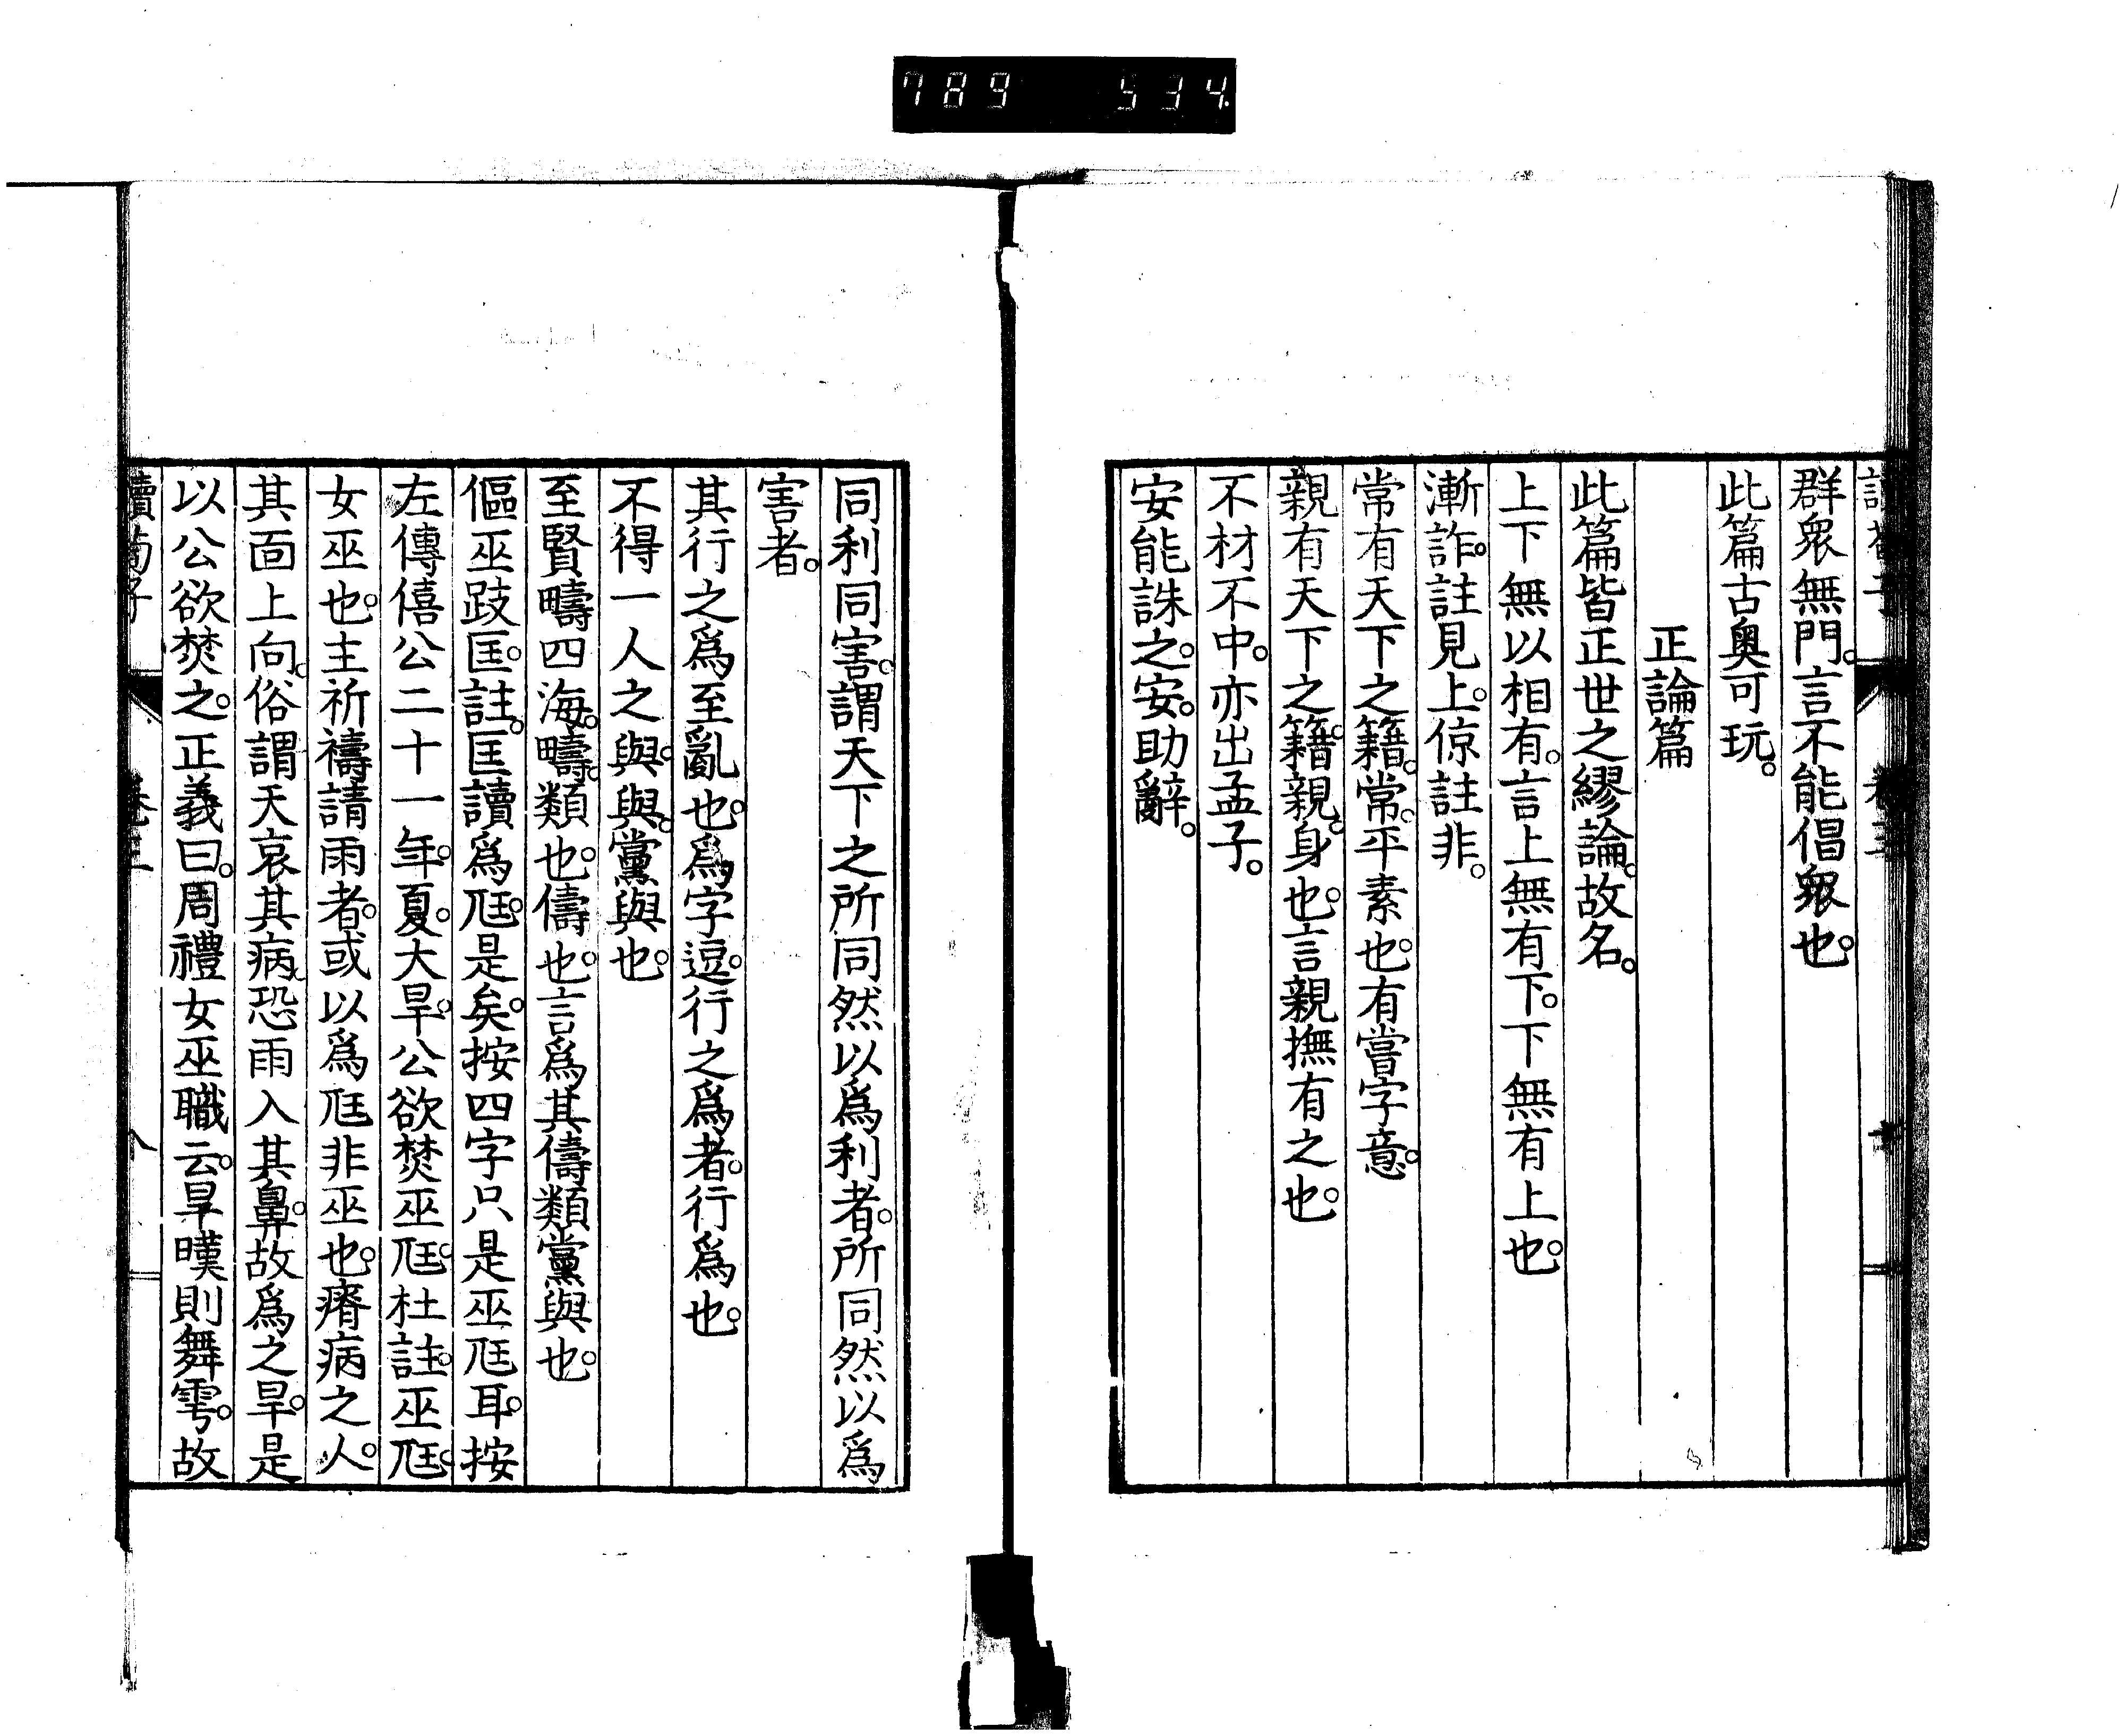 789 534
群衆無門。言不能倡衆也。
此篇古奥可玩。
正論篇
此篇皆正世之繆論。故名。
上下無以相有。言上無有下。下無有上也。
漸詐。註見上。倞註非。
常有天下之籍。常。平素也。有嘗字意。
親有天下之籍。親。身也。言親撫有之也。
不材不中。亦出孟子。
安能誅之。安。助辭。
同利同害。謂天下之所同然以爲利者。所同然以爲
害者。
其行之爲至亂也。爲字逗。行之爲者。行爲也。
不得一人之與。與。黨與也。
至賢疇四海。疇。類也。儔也。言爲其儔類黨與也。
傴巫跂匡。註。匡讀爲尫。是矣。按四字只是巫尫耳。按
左傳僖公二十一年。夏。大旱。公欲焚巫尫。杜註。巫尫。
女巫也。主祈禱請雨者。或以爲尫非巫也。瘠病之人。
其面上向。俗謂天哀其病。恐雨入其鼻。故爲之旱。是
以公欲焚之。正義曰。周禮女巫職云。旱暵則舞雩。故
讀荀子 卷三